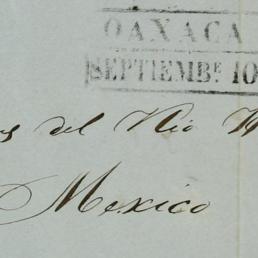 OAXACA
SEPTIEMBE 10
del Rio
Mexico